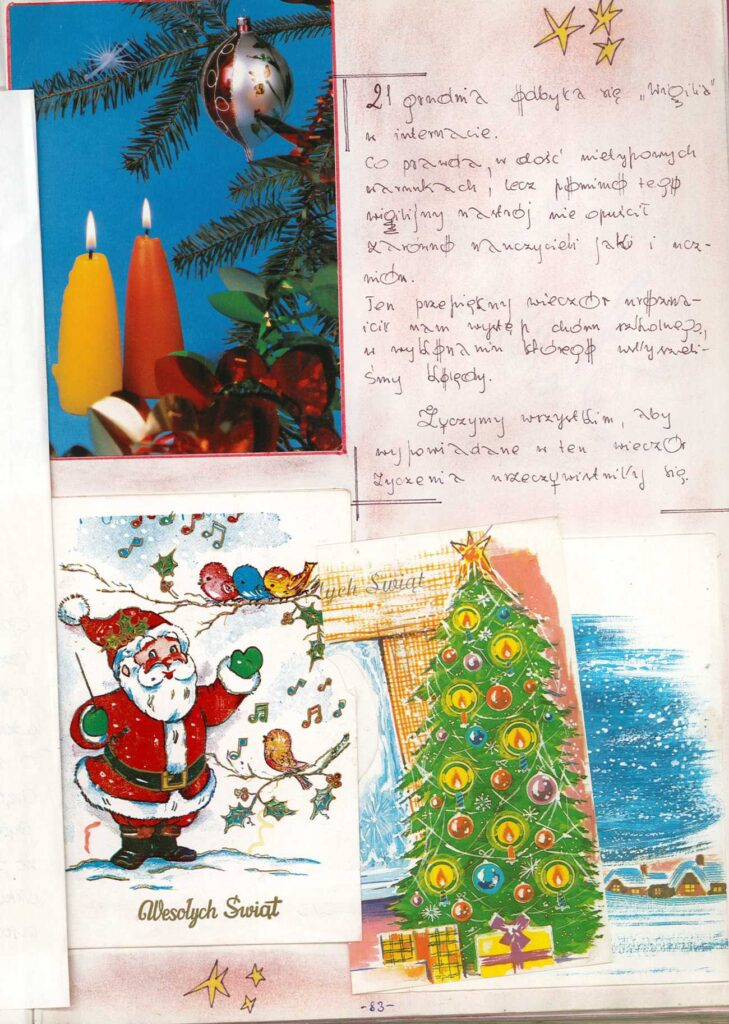 21 grudnia odbyła się „Wigilia"
w internacie.
Co prawda, w dość nietypowych
warunkach, lecz pomimo tego
wigilijny nastrój nie opuścił
zarówno nauczycieli jak i ucz-
niów.
Ten przepiękny wieczór urozma-
icił nam występ chóru szkolnego,
w wykonaniu którego usłyszeli-
śmy kolędy.
Życzymy wszystkim, aby
wypowiadane w ten wieczór
życzenia urzeczywistniły się.
łych Świąt
Wesołych Świąt
-83-